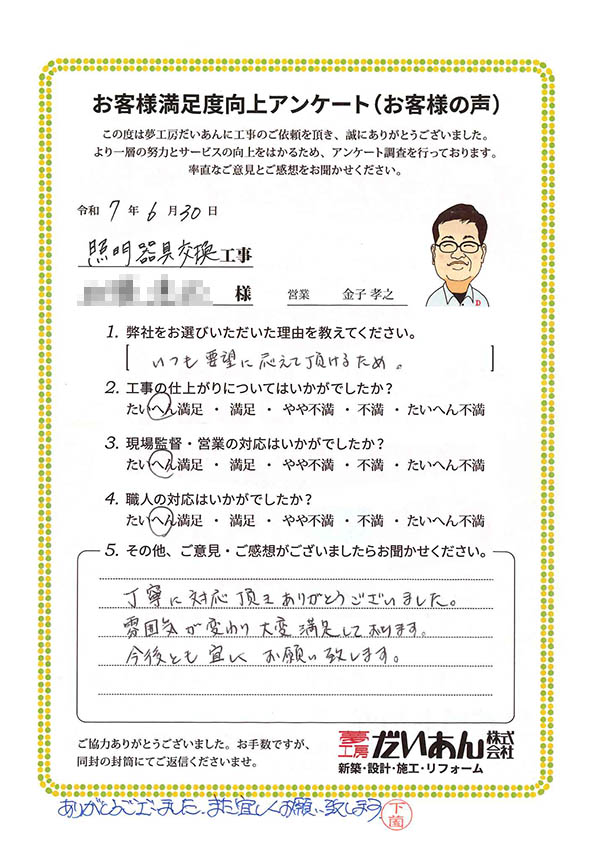 お客様満足度向上アンケート（お客様の声）
この度は夢工房だいあんに工事のご依頼を頂き、誠にありがとうございました。
より一層の努力とサービスの向上をはかるため、アンケート調査を行っております。
率直なご意見とご感想をお聞かせください。
令和 7 年 6 月 30 日
照明器具交換工事
様 営業 金子 孝之
1. 弊社をお選びいただいた理由を教えてください。
いつも要望に応えて頂けるため。
2. 工事の仕上がりについてはいかがでしたか？
たいへん満足 ・ 満足 ・ やや不満 ・ 不満 ・ たいへん不満
3. 現場監督・営業の対応はいかがでしたか？
たいへん満足 ・ 満足 ・ やや不満 ・ 不満 ・ たいへん不満
4. 職人の対応はいかがでしたか？
たいへん満足 ・ 満足 ・ やや不満 ・ 不満 ・ たいへん不満
5. その他、ご意見・ご感想がございましたらお聞かせください。
丁寧に対応頂きありがとうございました。
雰囲気が変わり大変満足して居ります。
今後とも宜しくお願い致します。
ご協力ありがとうございました。お手数ですが、
同封の封筒にてご返信くださいませ。
夢工房 だいあん 株式会社
新築・設計・施工・リフォーム
ありがとうございました。また宜しくお願い致します 下薗